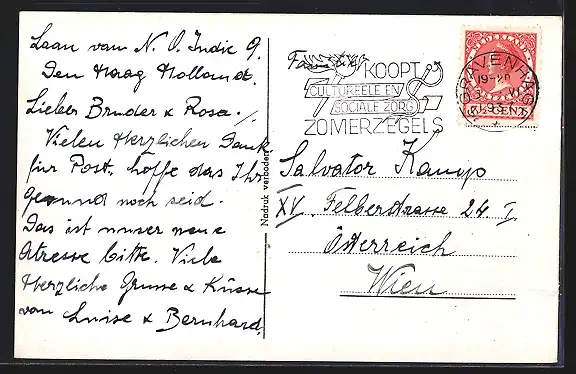 Laan van N. O. Indie 9.
Den Haag Holland.
Lieber Bruder & Rosa./
Vielen Herzlichen Dank
für Post. hoffe das Ihr
gesund noch seid.
Das ist unser neue
Atresse bitte. Viele
Herzliche Grusse & Küsse
von Luise & Bernhard.
Nadruk verboden
KOOPT
CULTUREELE EN
SOCIALE ZORG
ZOMERZEGELS
NEDERLAND
'S-GRAVENHAGE
19-20
CENT
Salvator Kamp
XV. Felberstrasse 24 I
Österreich
Wien